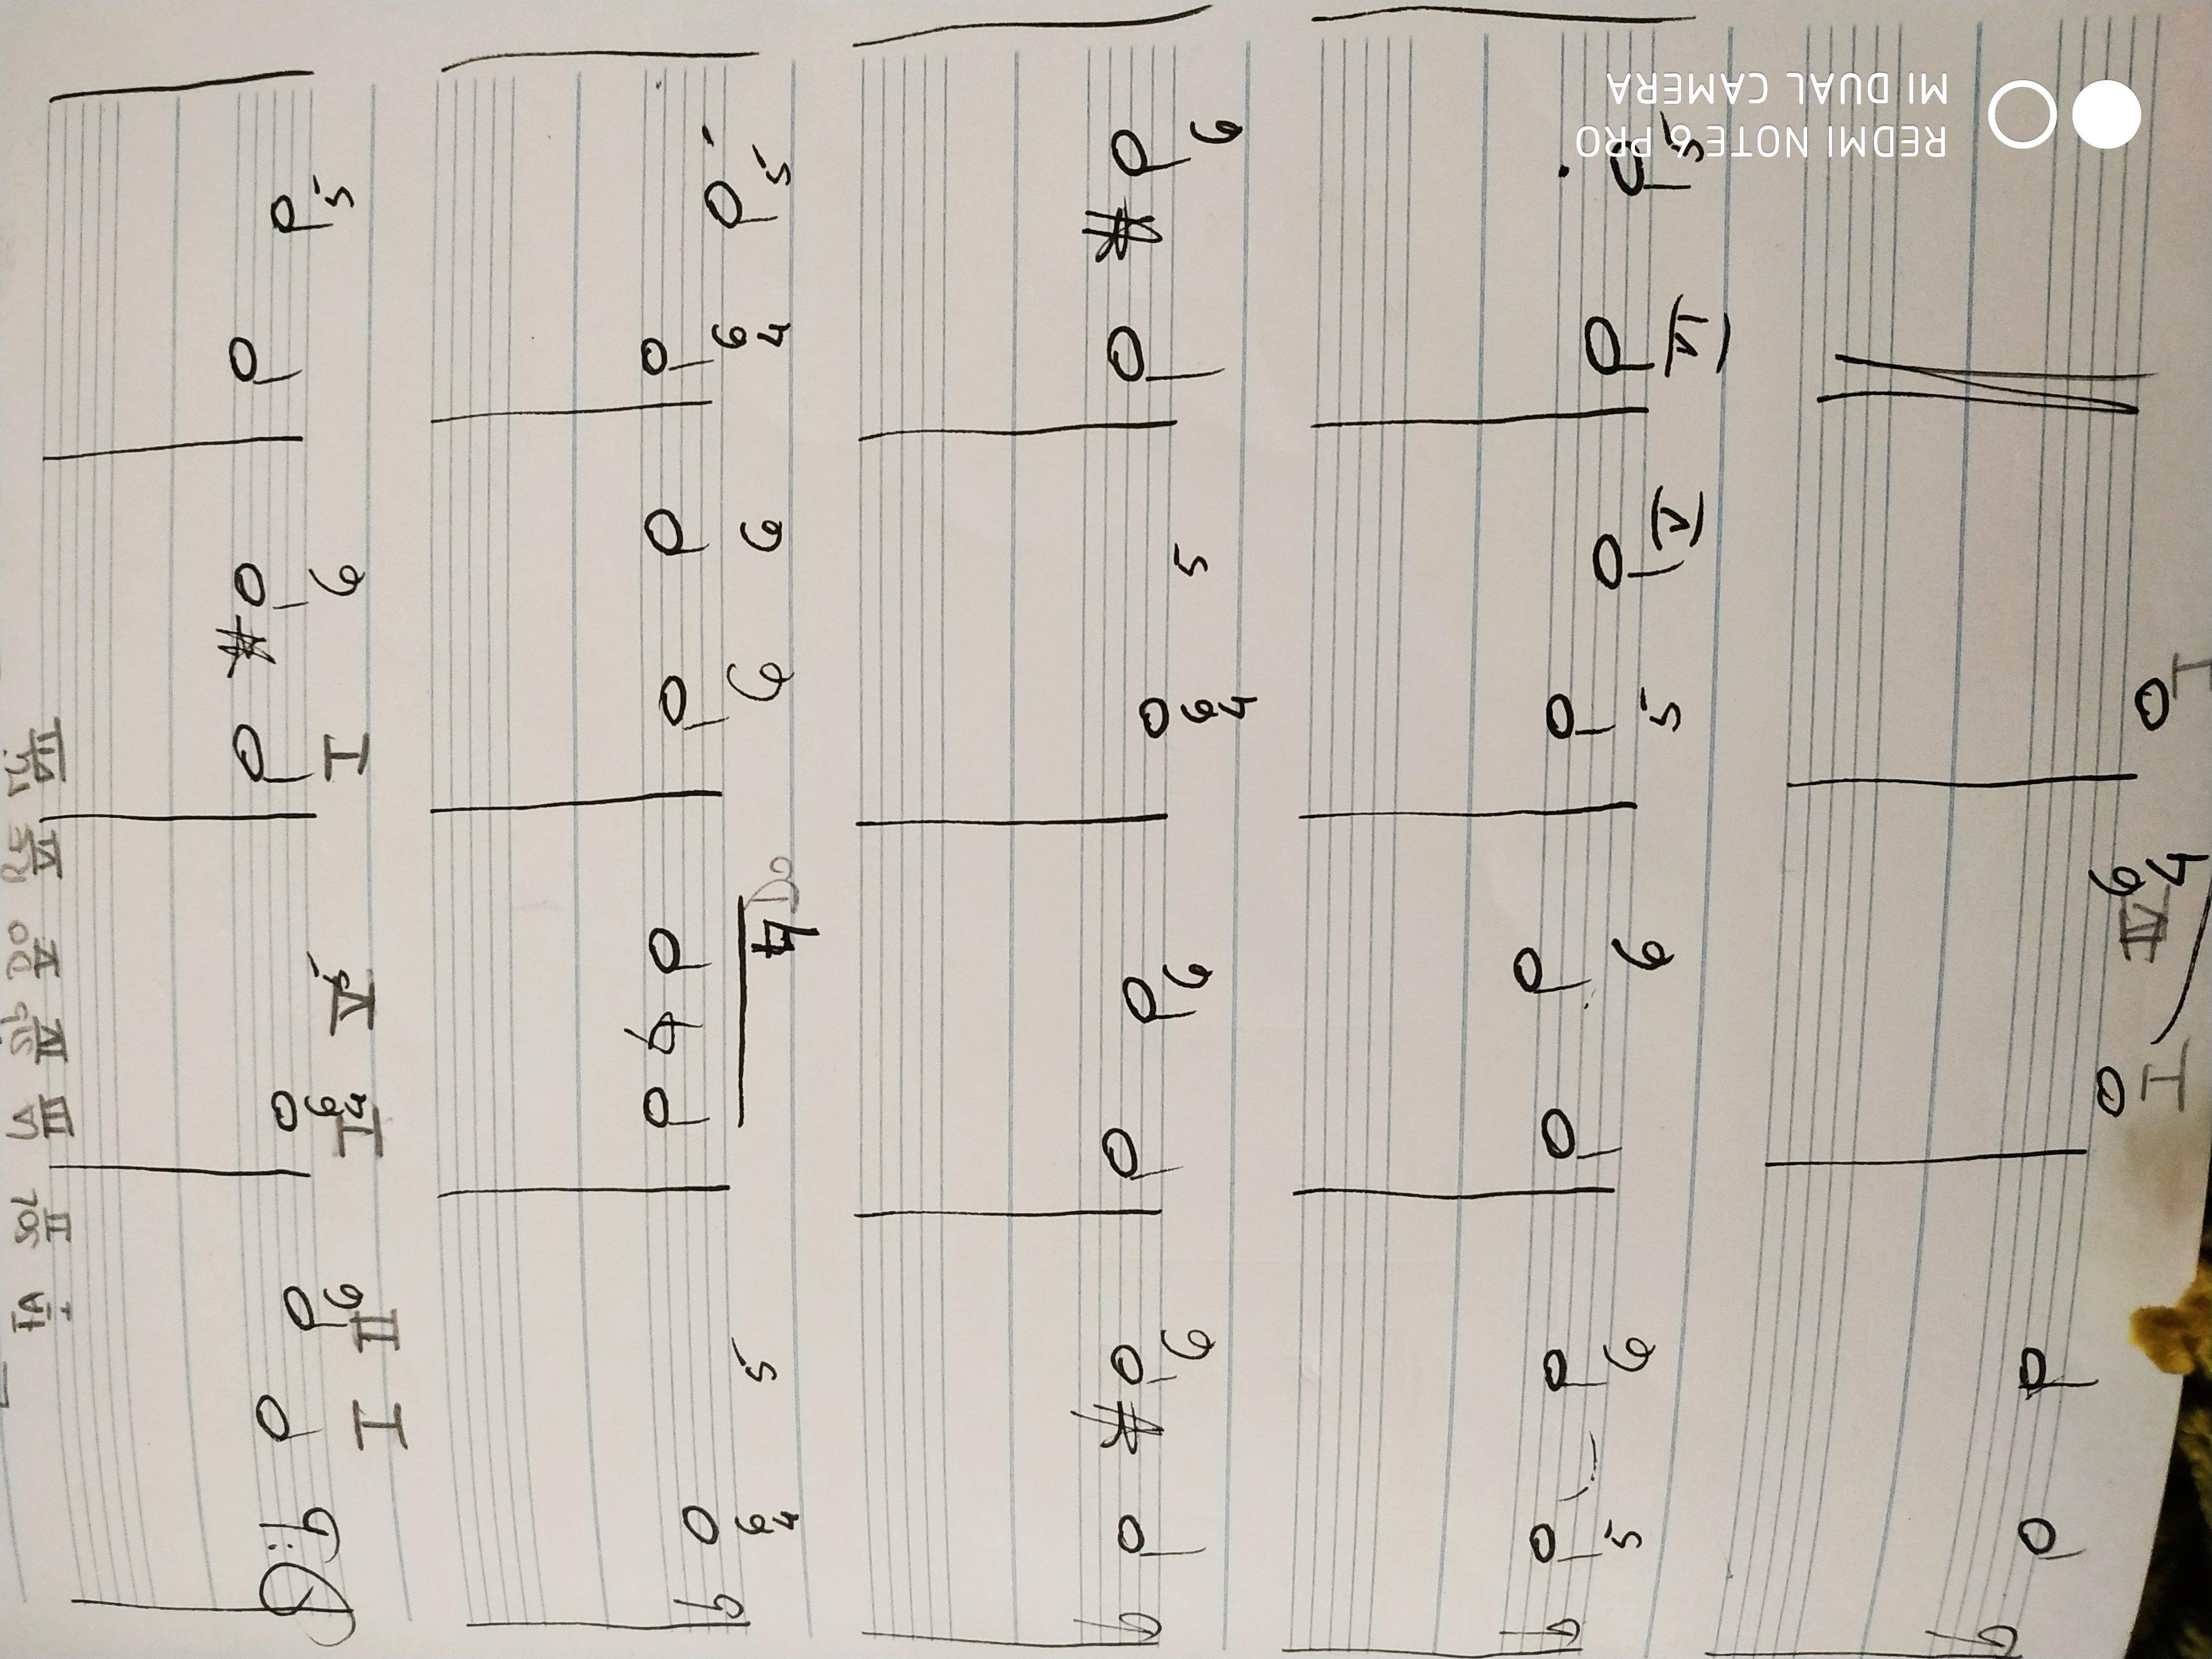 FA SOL LA SIb DO RE MI
I II III IV V VI VII
6 6 5 6 5
4
I II I V I
4
6 5 6 6 6 5
4 4
4 Do
6 6 6 5 6
4
5 6 6 5 V VI 5
6
4
I IV I
REDMI NOTE 6 PRO
MI DUAL CAMERA